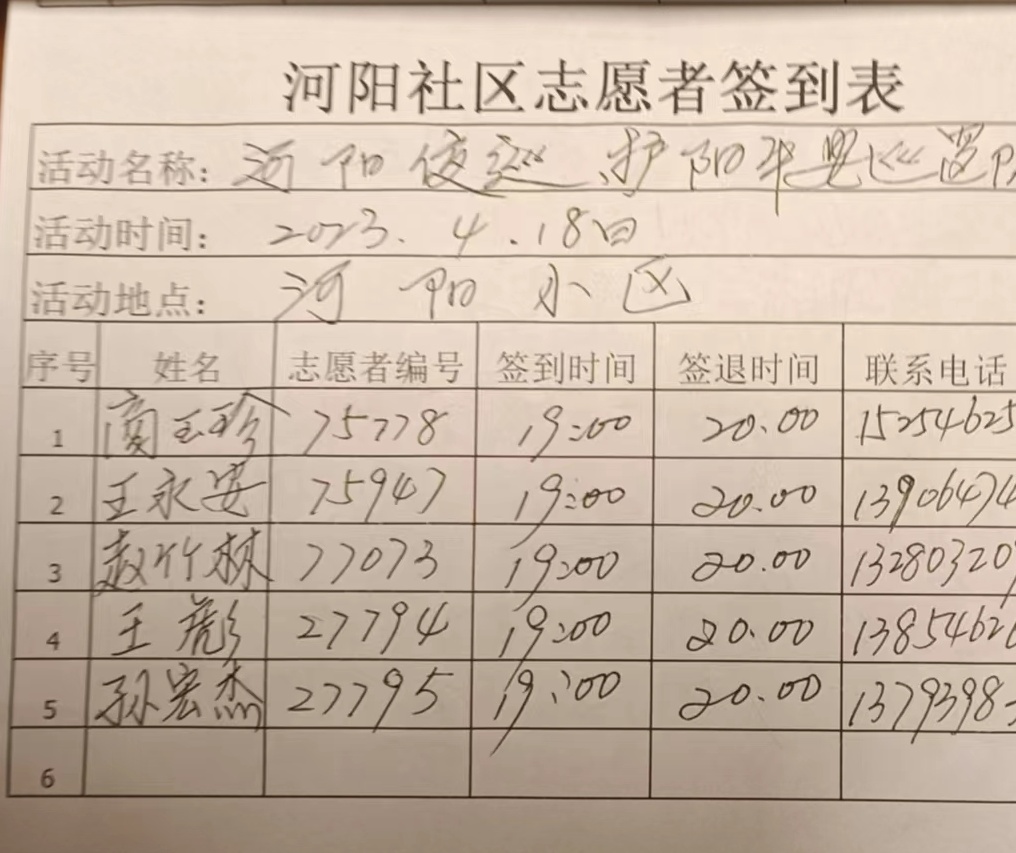 河阳社区志愿者签到表
活动名称: 河阳夜巡、护阳平
活动时间: 2023.4.18日
活动地点: 河阳小区
序号 姓名 志愿者编号 签到时间 签退时间 联系电话
1 玉珍 75778 19:00 20.00 15254625
2 王永安 75947 19:00 20.00 13906474
3 赵竹林 77073 19:00 20.00 13280320
4 王彪 27794 19:00 20.00 1385462
5 孙宏杰 27795 19:00 20.00 1379398
6